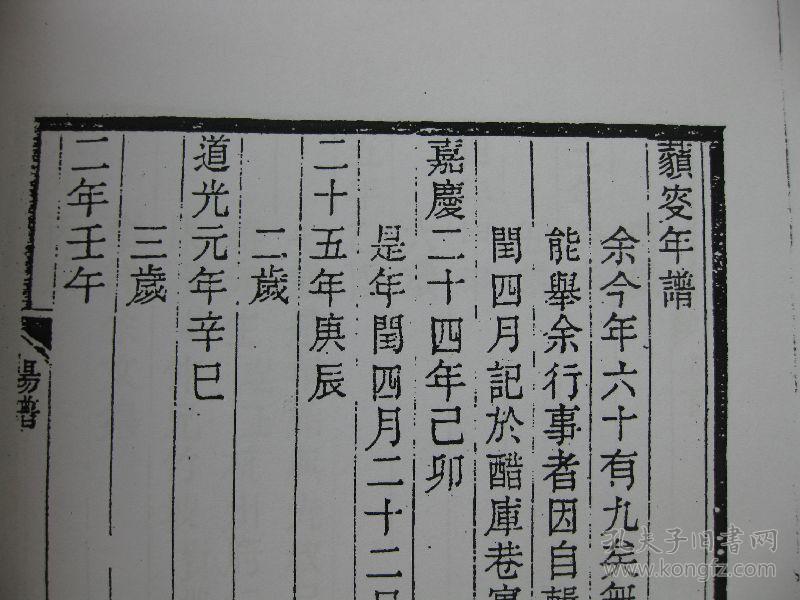 藾叟年譜
余今年六十有九矣無
能舉余行事者因自
閏四月記於醋庫巷寓
嘉慶二十四年己卯
是年閏四月二十二日
二十五年庚辰
二歲
道光元年辛巳
三歲
二年壬午
楊譜
孔夫子旧书网
www.kongfz.com